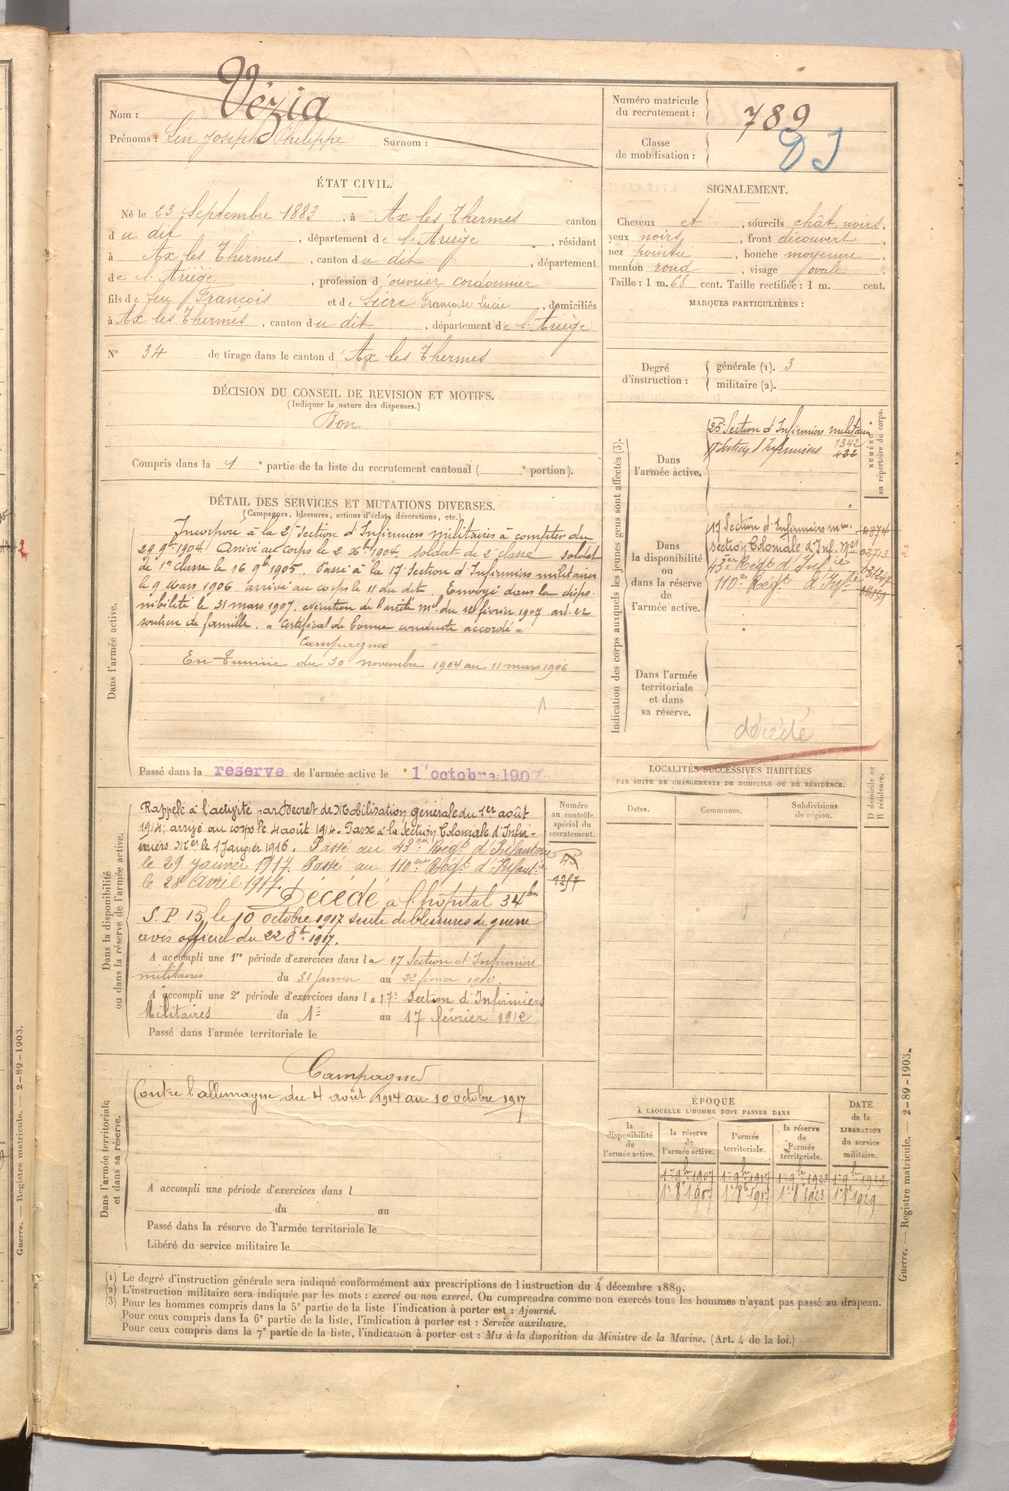 Nom : Vézia
Prénoms : Lin Joseph Philippe Surnom :
Numéro matricule du recrutement : 789
Classe de mobilisation :
ÉTAT CIVIL.
Né le 23 Septembre 1883, à Ax les Thermes canton
du dit, département de l'Ariège, résidant
à Ax les Thermes, canton du dit, département
de l'Ariège, profession d'ouvrier cordonnier
fils de feu François et de Sicre Françoise Lucie, domiciliés
à Ax les Thermes, canton du dit, département de l'Ariège
N° 34 de tirage dans le canton d'Ax les Thermes
SIGNALEMENT.
Cheveux et, sourcils chât. noirs,
yeux noirs, front découvert,
nez pointu, bouche moyenne,
menton rond, visage ovale.
Taille : 1 m. 68 cent. Taille rectifiée : 1 m. cent.
MARQUES PARTICULIÈRES :
Degré d'instruction : générale (1). 3
militaire (2).
DÉCISION DU CONSEIL DE REVISION ET MOTIFS.
(Indiquer la nature des dispenses.)
Bon
Compris dans la 1e partie de la liste du recrutement cantonal ( e portion).
DÉTAIL DES SERVICES ET MUTATIONS DIVERSES.
(Campagnes, blessures, actions d'éclat, décorations, etc.)
Dans l'armée active.
Incorporé à la Section d'Infirmiers militaires à compter du
29 9bre 1904 Arrivé au corps le 2 Xbre 1904 soldat de 2e classe soldat
de 1e classe le 16 9bre 1905. Passé à la 17e Section d'Infirmiers militaires
le 9 Mars 1906 arrivé au corps le 11 du dit Envoyé dans la dispo-
nibilité le 31 mars 1907. exécution de l'arrêté mel du 14 février 1907 art. 22
soutien de famille. "Certificat de bonne conduite accordé"
Campagnes
En Tunisie du 30 novembre 1904 au 11 mars 1906
Passé dans la reserve de l'armée active le 1 octobre 1907
Indication des corps auxquels les jeunes gens sont affectés (3).
Dans l'armée active.
25e Section d'Infirmiers militaires 1342
17e Section d'Infirmiers 432
NUMÉRO au répertoire du corps.
Dans la disponibilité ou dans la réserve de l'armée active.
17 Section d'Infirmiers mres.
section Coloniale d'Inf. Mres
43ème Régt d'Infie
110e Régt d'Infie
Dans l'armée territoriale et dans sa réserve.
décédé
Dans la disponibilité ou dans la réserve de l'armée active.
Rappelé à l'activité par Décret de Mobilisation générale du 1er août
1914; arrivé au corps le 4 août 1914. Passé à la Section Coloniale d'Infir-
miers Mres le 1 Janvier 1916. Passé au 43eme Régt d'Infanterie
le 29 janvier 1917. Passé au 110eme Régt d'Infante
le 28 avril 1917. Décédé à l'hôpital 34bis
S. P 15, le 10 octobre 1917 suite de blessures de guerre
avis officiel du 22 8bre 1917.
A accompli une 1re période d'exercices dans la 17 Section d'Infirmiers
militaires du 31 Janvier au 22 février 1910.
A accompli une 2e période d'exercices dans la 17e Section d'Infirmiers
Militaires du 1er au 17 février 1912
Passé dans l'armée territoriale le
Numéro au contrôle spécial du recrutement.
1257
LOCALITÉS SUCCESSIVES HABITÉES
PAR SUITE DE CHANGEMENTS DE DOMICILE OU DE RÉSIDENCE.
Dates. Communes. Subdivisions de région. D domicile ou R résidence.
Dans l'armée territoriale et dans sa réserve.
Campagnes
Contre l'allemagne du 4 août 1914 au 10 octobre 1917
A accompli une période d'exercices dans l
du au
Passé dans la réserve de l'armée territoriale le
Libéré du service militaire le
ÉPOQUE
À LAQUELLE L'HOMME DOIT PASSER DANS
la disponibilité de l'armée active. la réserve de l'armée active. l'armée territoriale. la réserve de l'armée territoriale. DATE de la LIBÉRATION du service militaire.
1er 9bre 1907 1er 9bre 1917 1er 9bre 1923 1er 9bre 1929
1er 8bre 1907 1er 8bre 1917 1er 8bre 1923 1er 8bre 1929
(1) Le degré d'instruction générale sera indiqué conformément aux prescriptions de l'instruction du 4 décembre 1889.
(2) L'instruction militaire sera indiquée par les mots : exercé ou non exercé. On comprendra comme non exercés tous les hommes n'ayant pas passé au drapeau.
(3) Pour les hommes compris dans la 5e partie de la liste l'indication à porter est : Ajourné.
Pour ceux compris dans la 6e partie de la liste, l'indication à porter est : Service auxiliaire.
Pour ceux compris dans la 7e partie de la liste, l'indication à porter est : Mis à la disposition du Ministre de la Marine. (Art. 4 de la loi.)
Guerre. — Registre matricule. — 2-89-1903.
Guerre. — Registre matricule. — 2-89-1903.